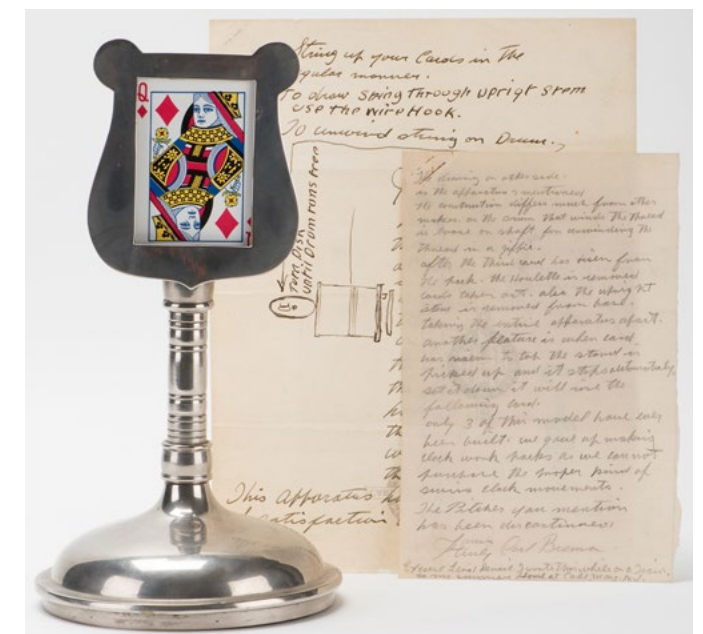 Q
String up your Cards in the
regular manner.
To draw string through Uprigt Stem
use the wire Hook.
To unwind string on Drum.
turn Disk
until Drum runs free
This Apparatus
satisfaction
drawing on other side.
is the apparatus mentioned
the construction differs much from other
makers. on the drum that winds the thread
is loose on shaft for unwinding the
thread in a jiffie.
after the third card has risen from
the pack. the Houlette is removed
cards taken out. also the upright
stem is removed from base.
taking the entire apparatus apart.
another feature is when card
has risen to top the stand is
picked up and it stops automatically
set it down it will rise the
following card.
only 3 of this model have ever
been built. we gave up making
clock work packs as we cannot
purchase the proper kind of
swiss clock movements.
The Pitches you mention
has been discontinued
Yours
Truly Carl Brema
Excuse Lead pencil I wrote this while on a Train